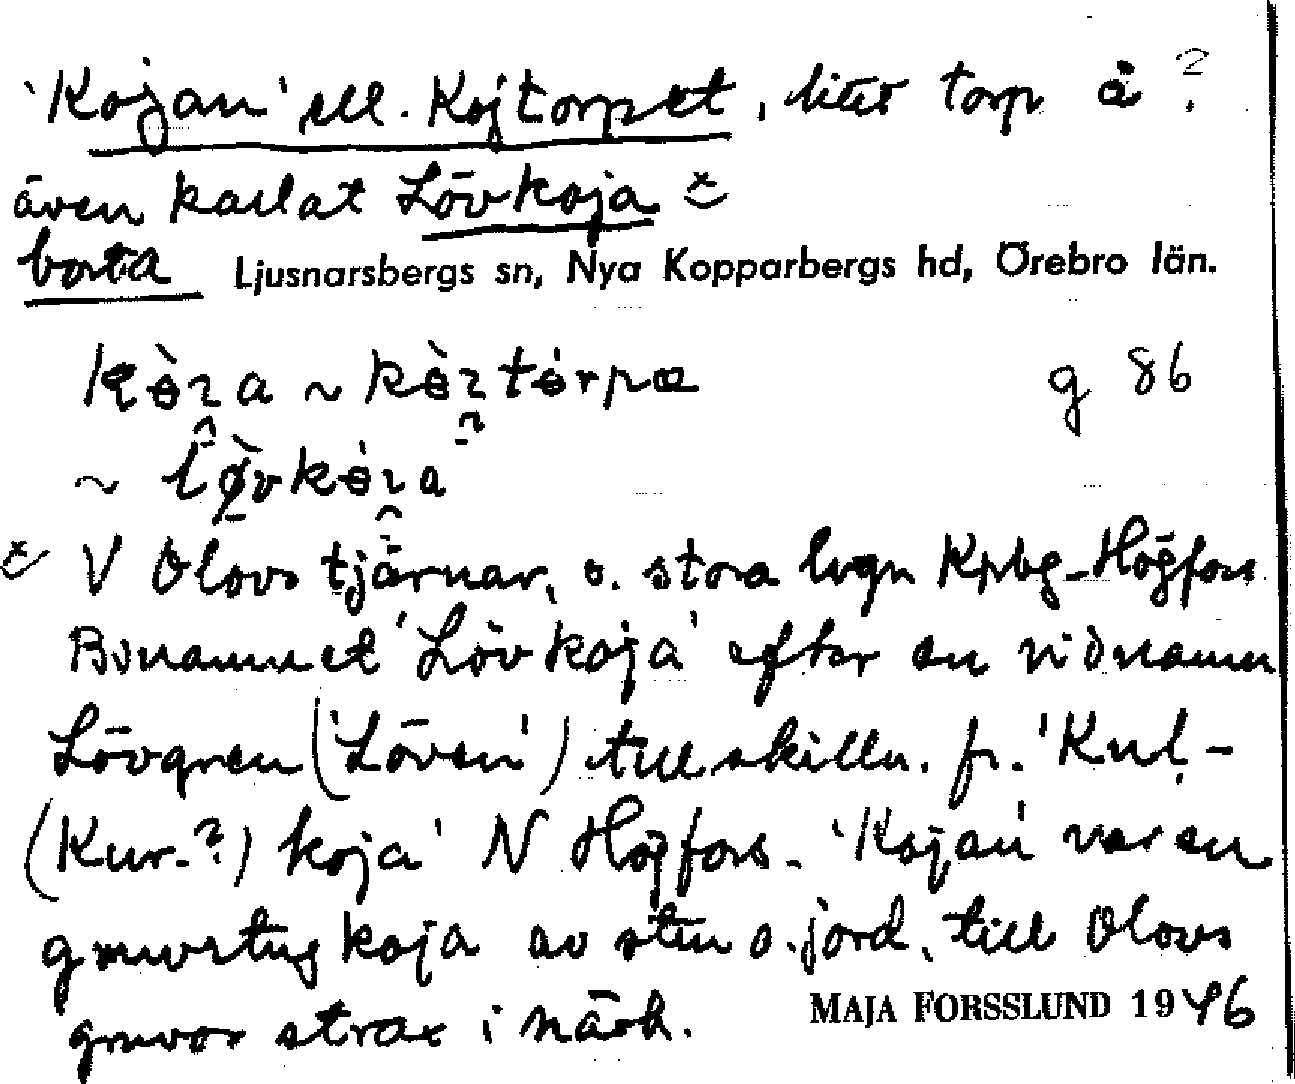 'Kojan' ell. Kojtorpet, litet torp å ?
även kallat Lövkoja x
borta Ljusnarsbergs sn, Nya Kopparbergs hd, Örebro län.
g 86
~
x V Olovs tjärnar, o. stora lvgn Kpbg-Högfors
Bynamnet 'Lövkoja' efter en vidnamn
Lövgren ('Löven') till skilln. fr. 'Kuḷ-
(Kur-?) koja' N Högfors. 'Kojan' var en
gruvstugkoja av sten o. jord, till Olovs
gruvor strax i närh.
MAJA FORSSLUND 1946